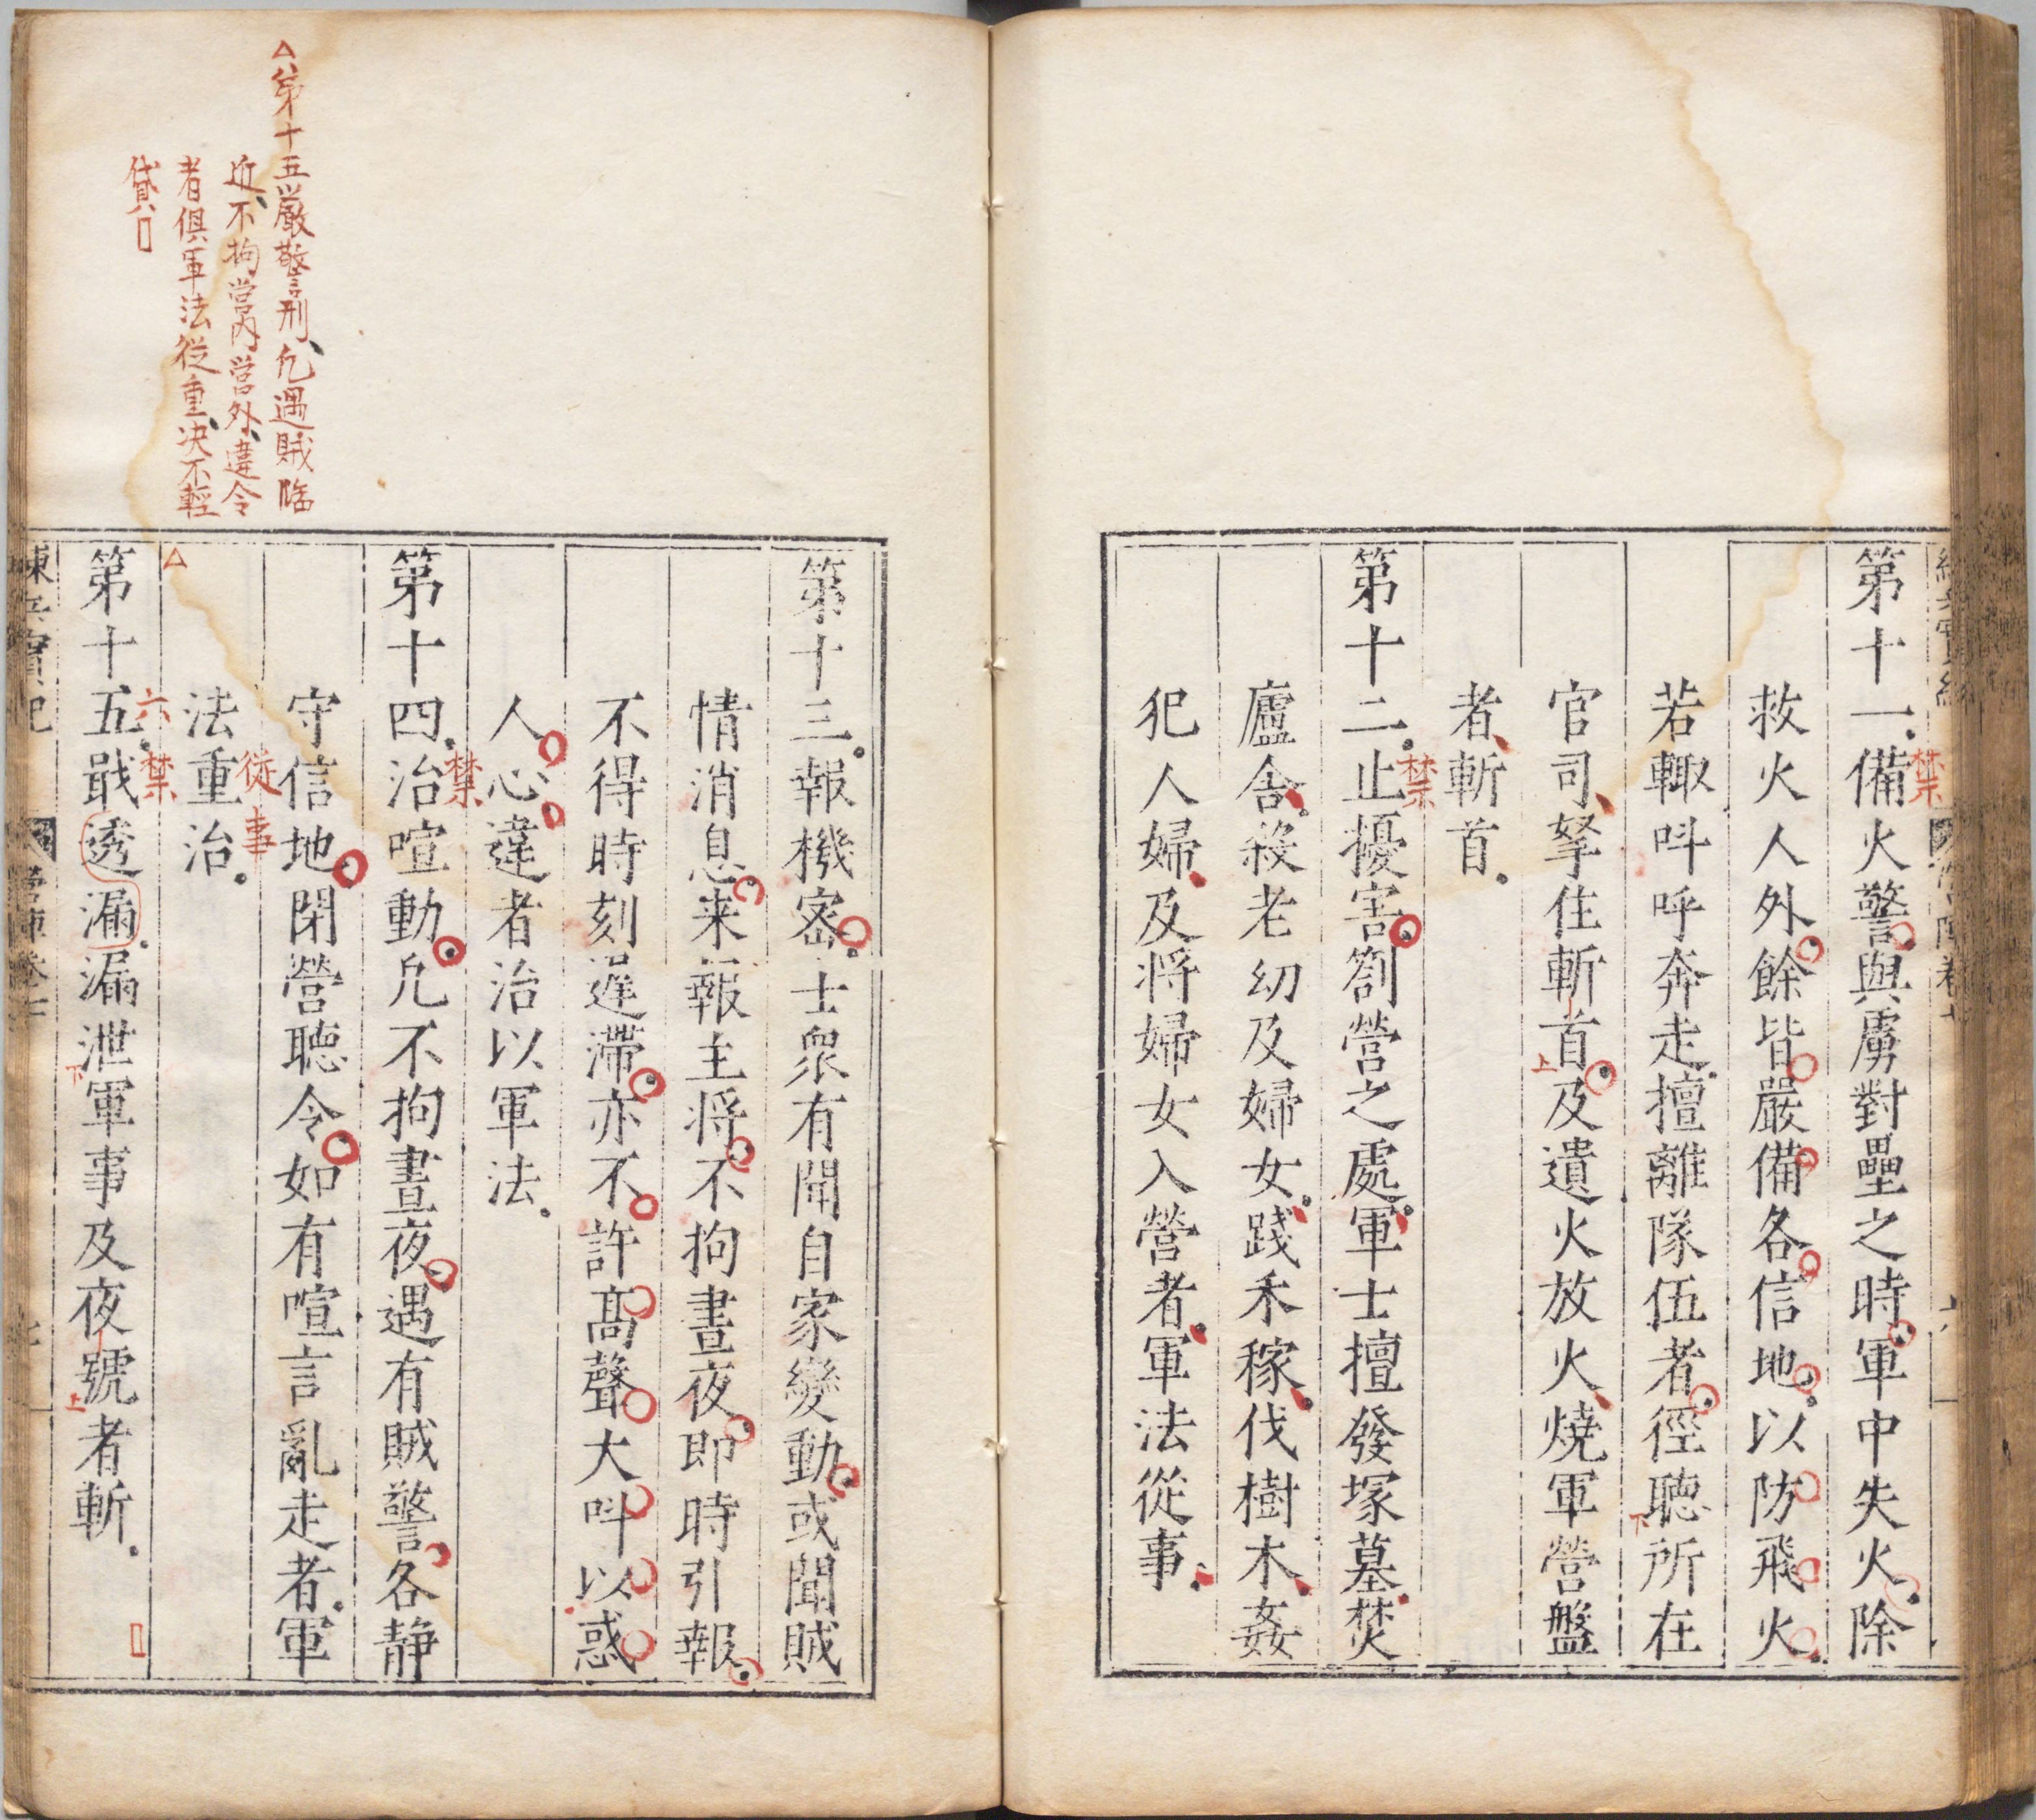 第十一備火警與虜對壘之時軍中失火除
禁
救火人外餘皆嚴備各信地以防飛火
若輙呌呼奔走擅離隊伍者徑聽所在
下
官司拏住斬首及遺火放火燒軍營盤
上
者斬首
第十二止擾害劄營之處軍士擅發塚墓焚
禁
廬舍殺老幼及婦女踐禾稼伐樹木姦
犯人婦及将婦女入營者軍法從事
第十三報機宻士衆有聞自家變動或聞賊
情消息来報主将不拘晝夜即時引報
不得時刻遲滯亦不許髙聲大呌以惑
人心違者治以軍法
第十四治喧動凢不拘晝夜遇有賊警各静
禁
守信地閉營聽令如有喧言亂走者軍
法重治
從事
△
第十五戢透漏漏泄軍事及夜號者斬
六禁
下
上
△第十五嚴警刑凢遇賊臨
近不拘營内營外違令
者俱軍法從重决不輕
貸